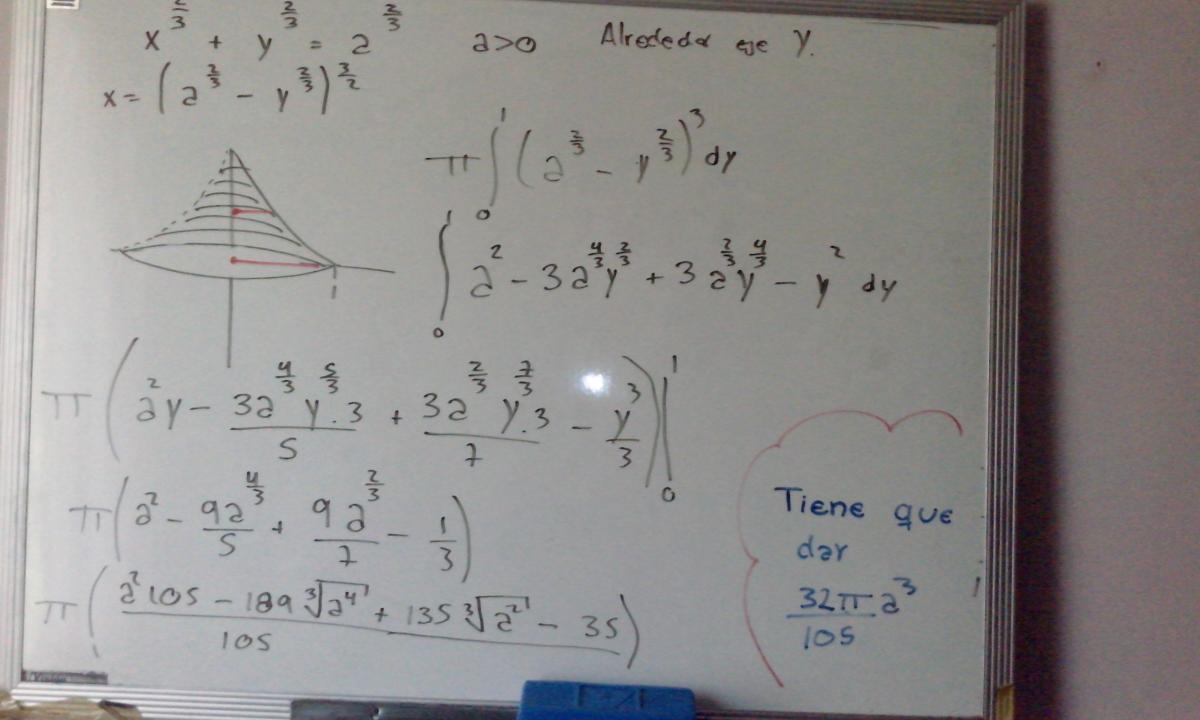 x^{2/3} + y^{2/3} = a^{2/3}   a>0   Alrededor eje Y.
x = (a^{2/3} - y^{2/3})^{3/2}
π ∫_0^1 (a^{2/3} - y^{2/3})^3 dy
1
∫_0^1 a^2 - 3a^{4/3}y^{2/3} + 3a^{2/3}y^{4/3} - y^2 dy
π (a^2y - 3a^{4/3}y^{5/3}.3/5 + 3a^{2/3}y^{7/3}.3/7 - y^3/3)|_0^1
π (a^2 - 9a^{4/3}/5 + 9a^{2/3}/7 - 1/3)
π (a^2 105 - 189∛a^4 + 135∛a^2 - 35 / 105)
Tiene que
dar
32π/105 a^3